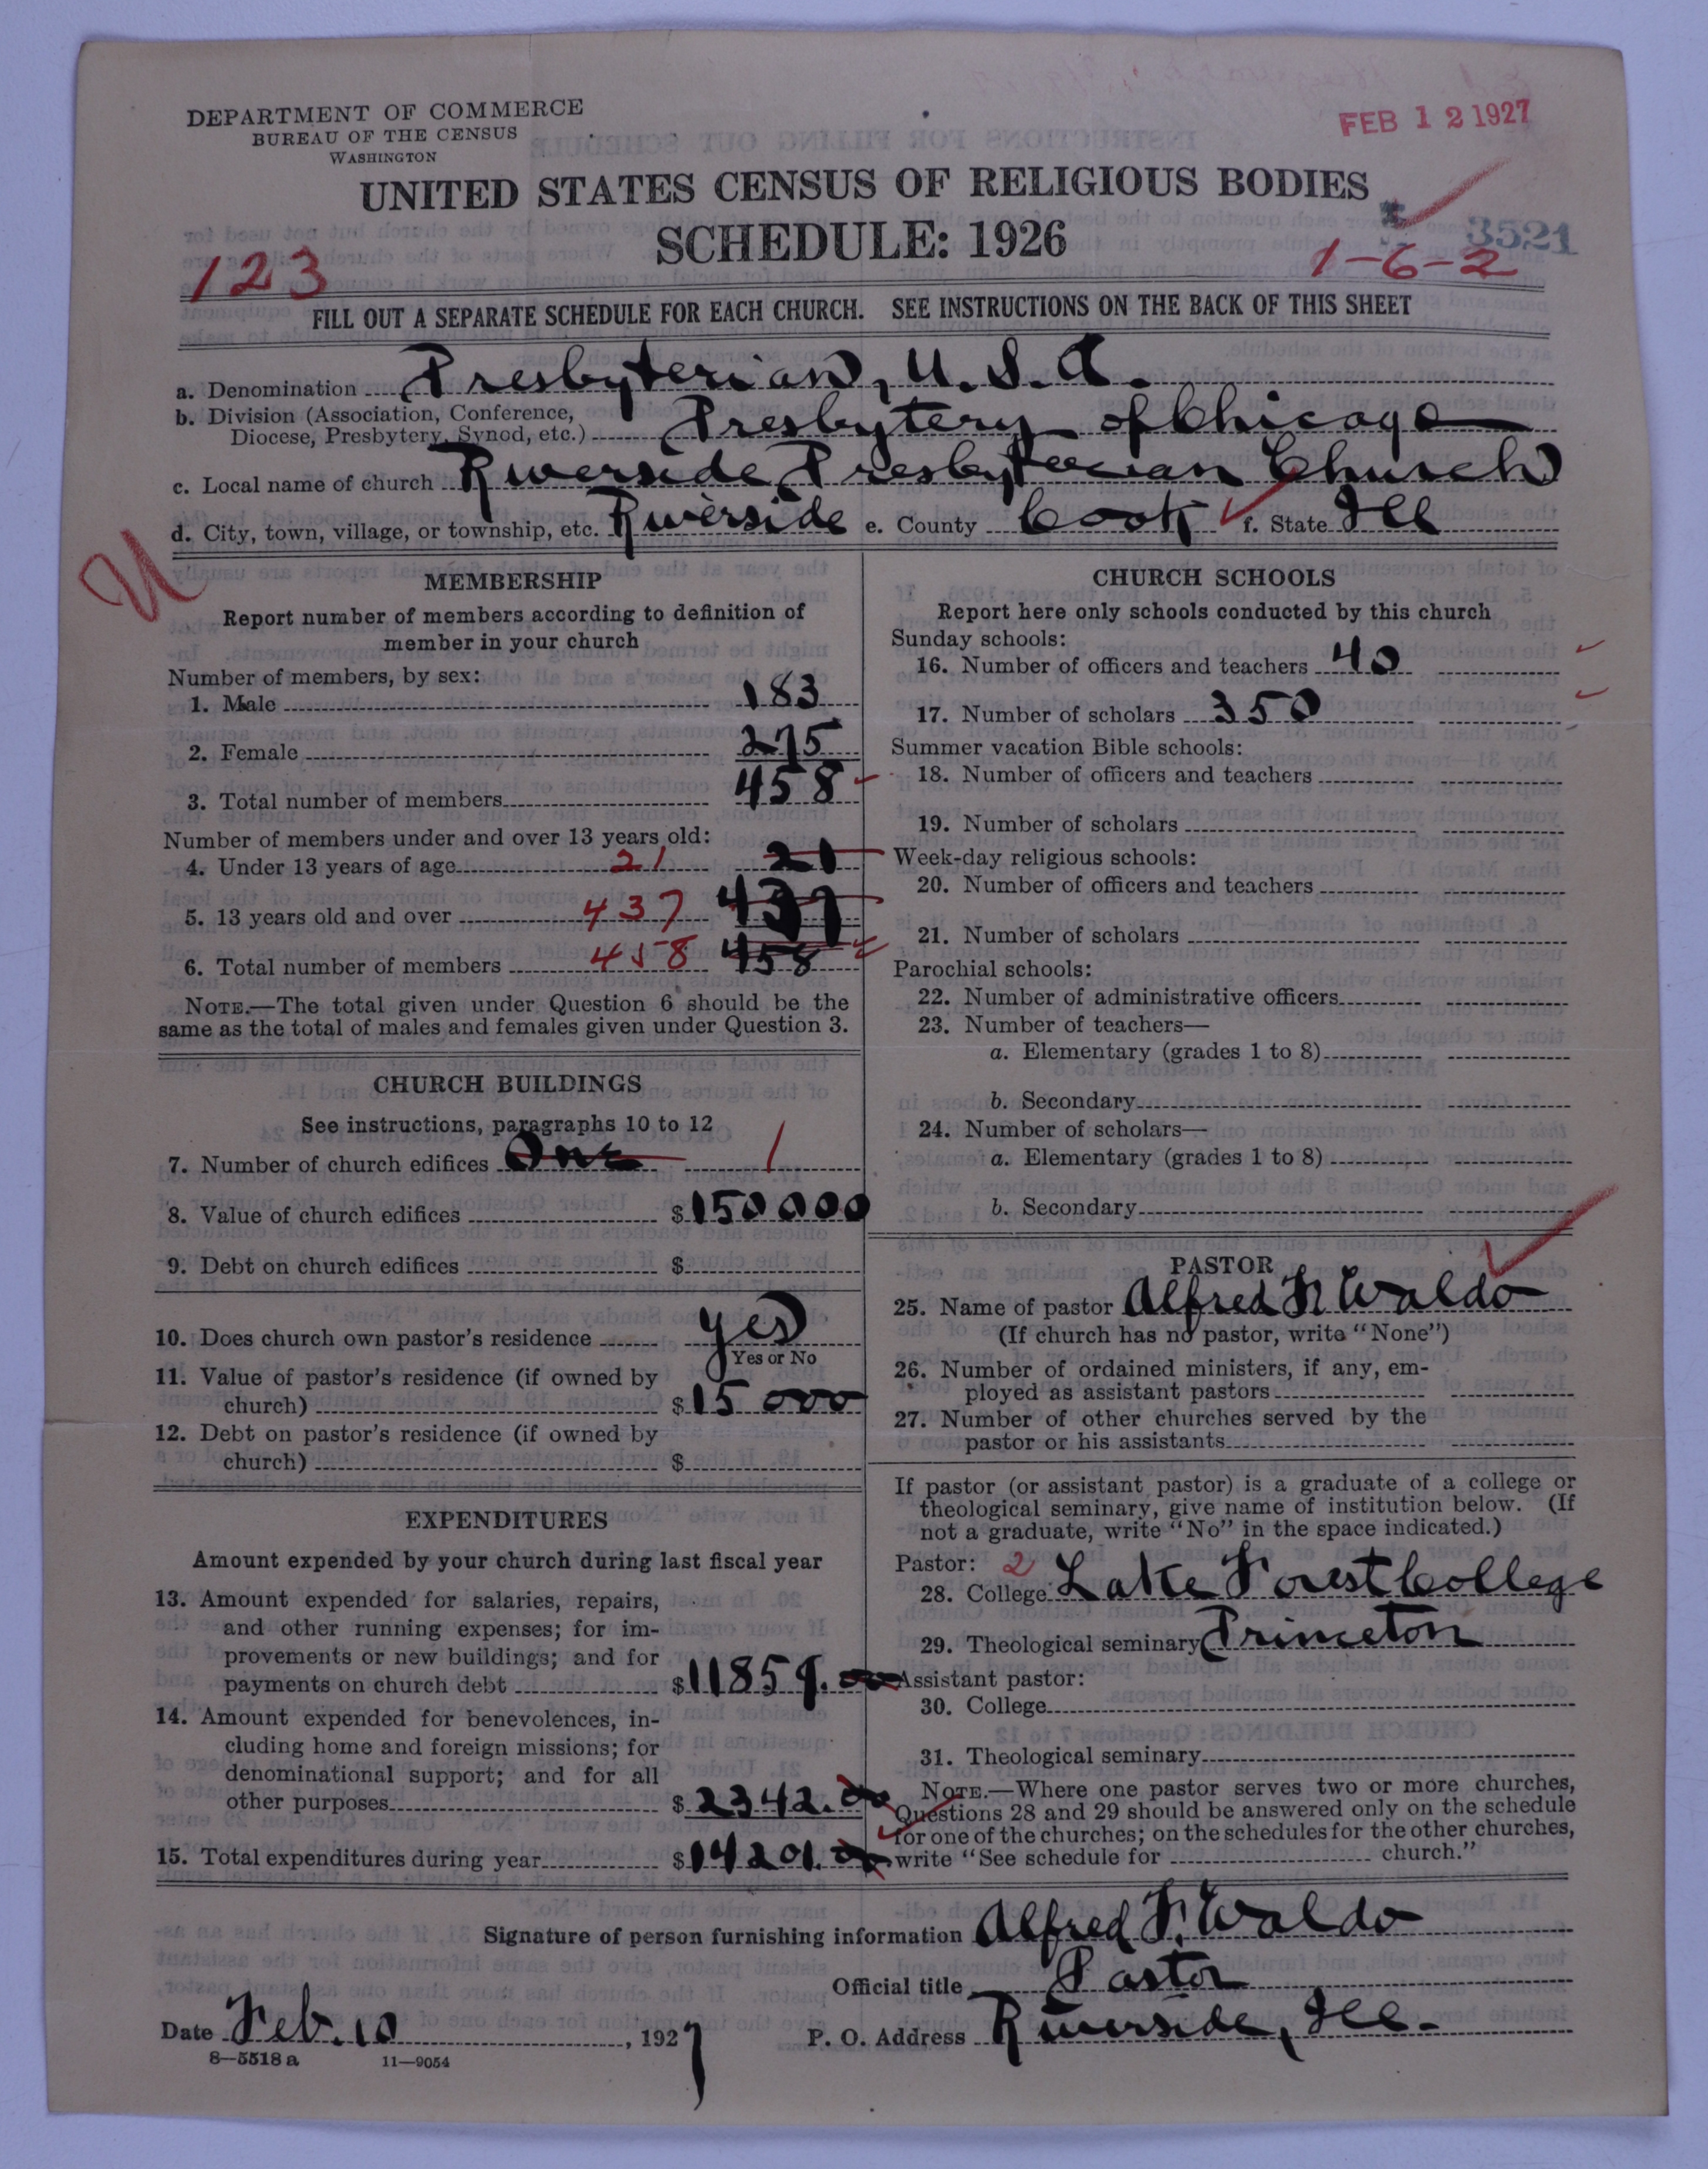 DEPARTMENT OF COMMERCE
BUREAU OF THE CENSUS
WASHINGTON
FEB 12 1927
UNITED STATES CENSUS OF RELIGIOUS BODIES
SCHEDULE: 1926
3521
123
1-6-2
FILL OUT A SEPARATE SCHEDULE FOR EACH CHURCH. SEE INSTRUCTIONS ON THE BACK OF THIS SHEET
a. Denomination Presbyterian, U.S.A.
b. Division (Association, Conference, Diocese, Presbytery, Synod, etc.) Presbytery of Chicago
c. Local name of church Riverside Presbyterian Church
d. City, town, village, or township, etc. Riverside e. County Cook f. State Ill
U
MEMBERSHIP
Report number of members according to definition of
member in your church
Number of members, by sex:
1. Male 183
2. Female 275
3. Total number of members 458
Number of members under and over 13 years old:
4. Under 13 years of age 21 21
5. 13 years old and over 437 437
6. Total number of members 458 458
NOTE.—The total given under Question 6 should be the
same as the total of males and females given under Question 3.
CHURCH BUILDINGS
See instructions, paragraphs 10 to 12
7. Number of church edifices One 1
8. Value of church edifices $150000
9. Debt on church edifices $
10. Does church own pastor's residence yes
Yes or No
11. Value of pastor's residence (if owned by
church) $15000
12. Debt on pastor's residence (if owned by
church) $
EXPENDITURES
Amount expended by your church during last fiscal year
13. Amount expended for salaries, repairs,
and other running expenses; for im-
provements or new buildings; and for
payments on church debt $11859.00
14. Amount expended for benevolences, in-
cluding home and foreign missions; for
denominational support; and for all
other purposes $2342.00
15. Total expenditures during year $14201.00
CHURCH SCHOOLS
Report here only schools conducted by this church
Sunday schools:
16. Number of officers and teachers 40
17. Number of scholars 350
Summer vacation Bible schools:
18. Number of officers and teachers
19. Number of scholars
Week-day religious schools:
20. Number of officers and teachers
21. Number of scholars
Parochial schools:
22. Number of administrative officers
23. Number of teachers—
a. Elementary (grades 1 to 8)
b. Secondary
24. Number of scholars—
a. Elementary (grades 1 to 8)
b. Secondary
PASTOR
25. Name of pastor Alfred F. Waldo
(If church has no pastor, write "None")
26. Number of ordained ministers, if any, em-
ployed as assistant pastors
27. Number of other churches served by the
pastor or his assistants
If pastor (or assistant pastor) is a graduate of a college or
theological seminary, give name of institution below. (If
not a graduate, write "No" in the space indicated.)
Pastor: 2
28. College Lake Forest College
29. Theological seminary Princeton
Assistant pastor:
30. College
31. Theological seminary
NOTE.—Where one pastor serves two or more churches,
Questions 28 and 29 should be answered only on the schedule
for one of the churches; on the schedules for the other churches,
write "See schedule for church."
Signature of person furnishing information Alfred F. Waldo
Official title Pastor
Date Feb. 10, 1927 P. O. Address Riverside, Ill.
8—5518 a 11—9054